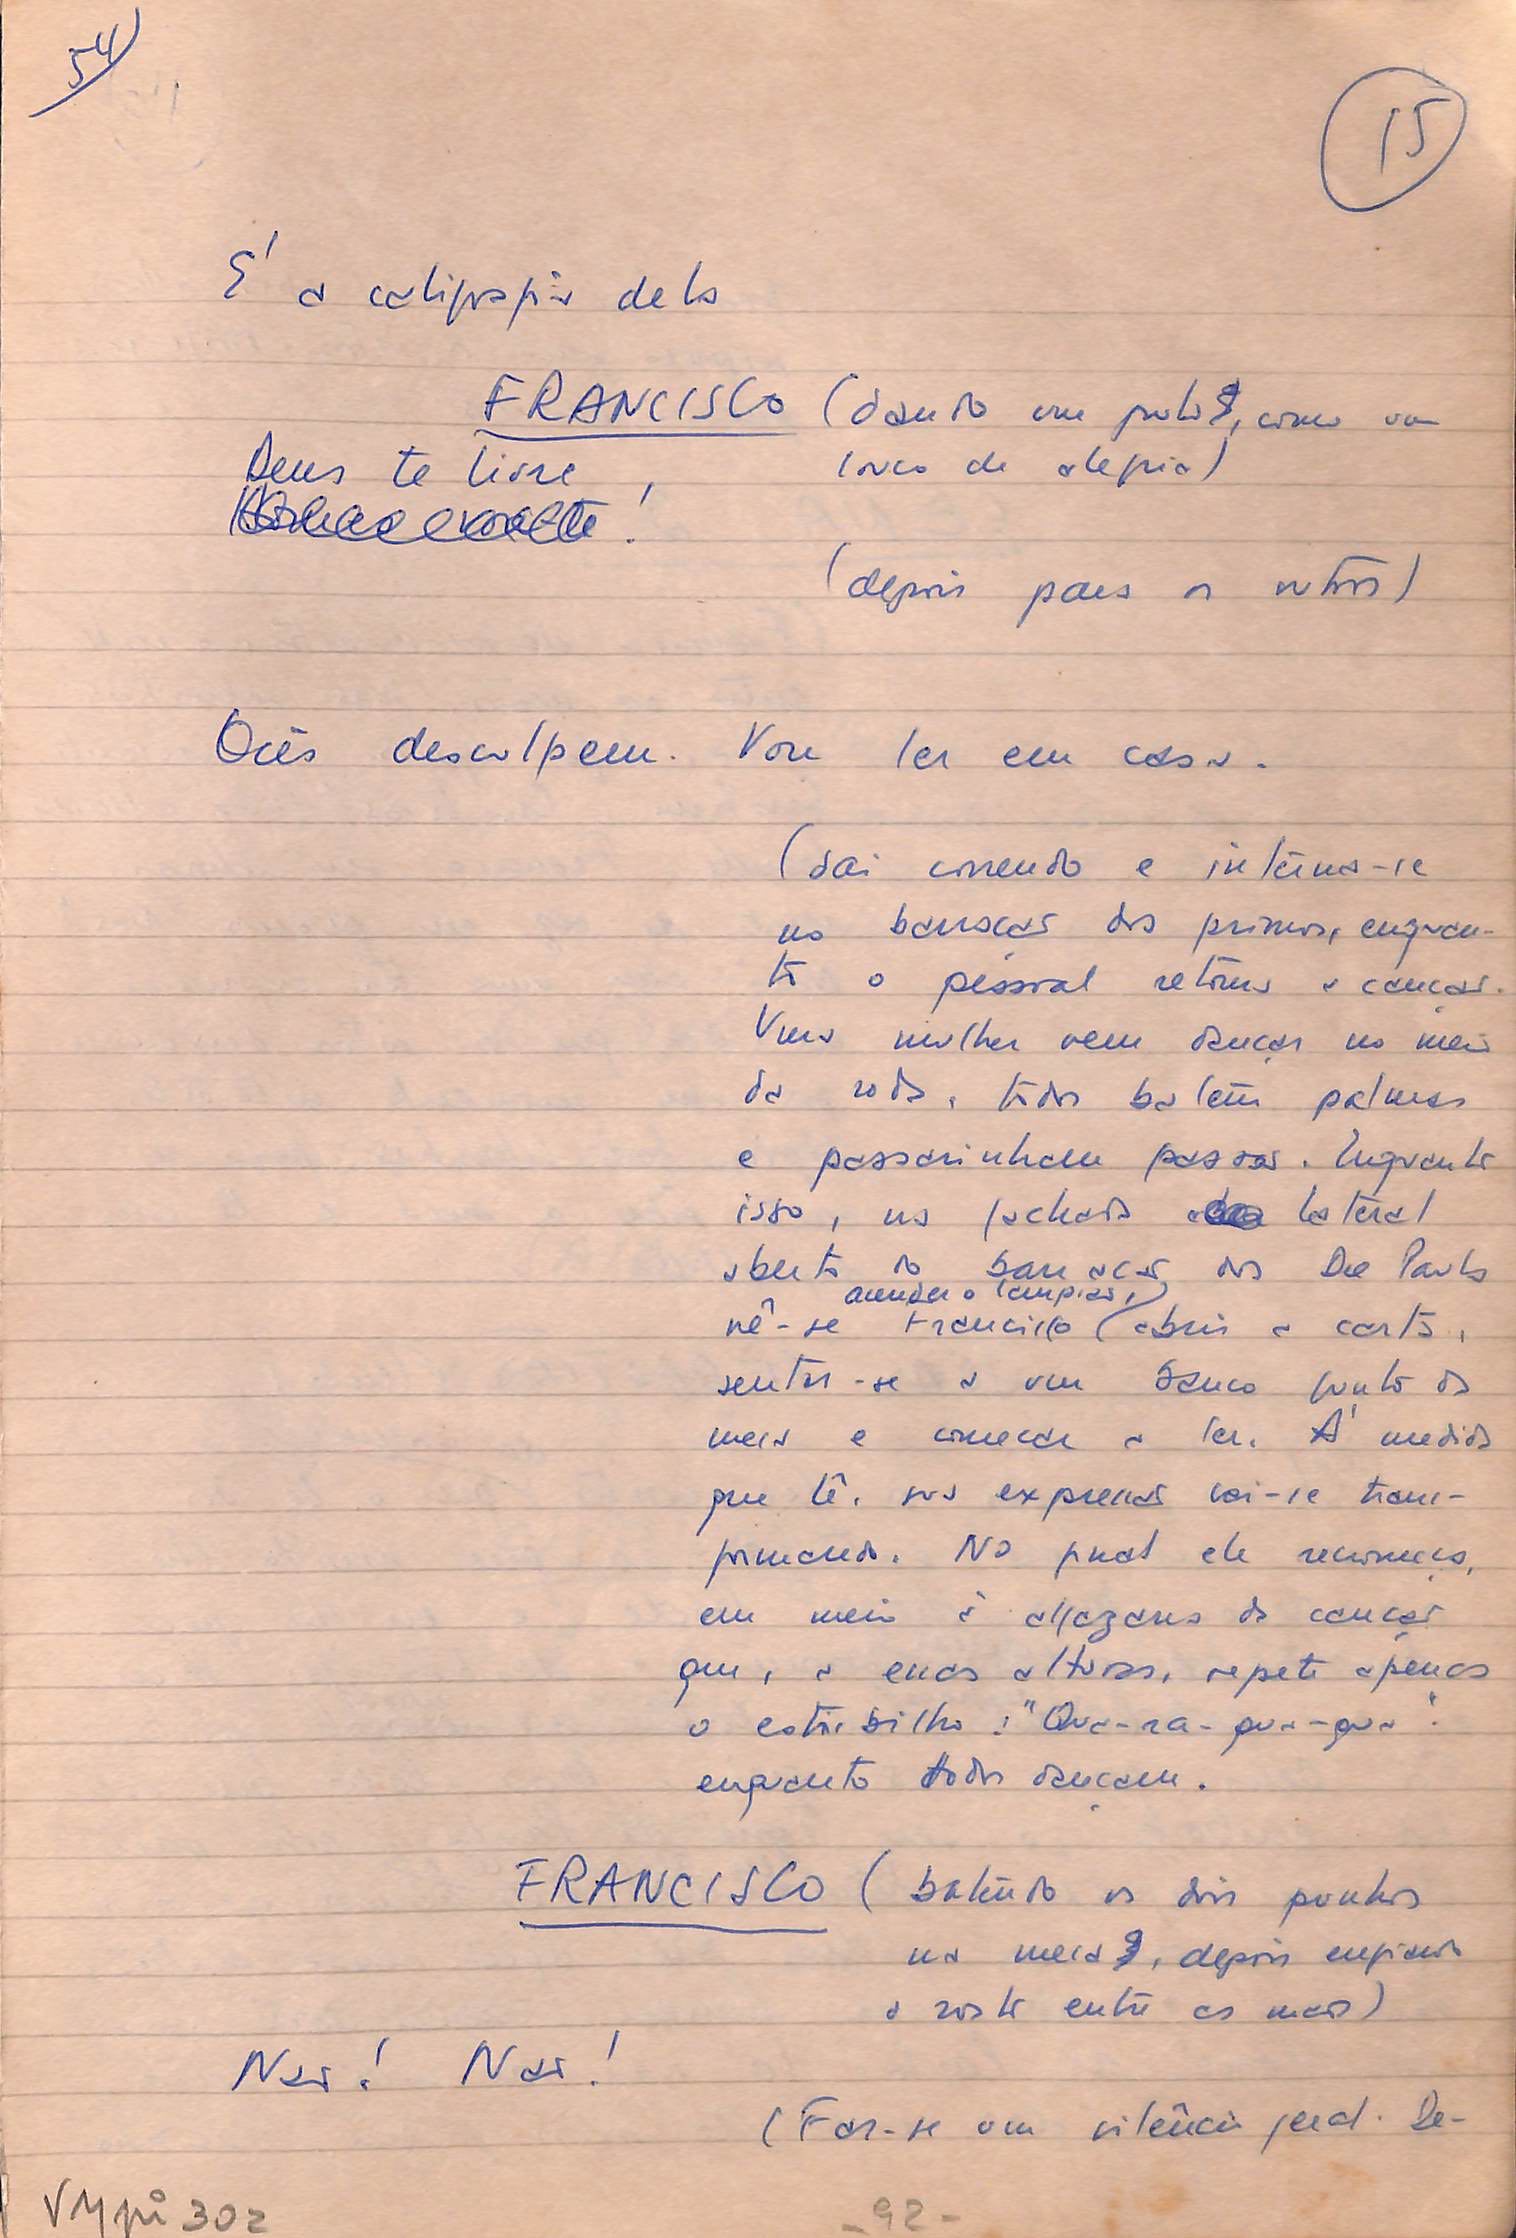 54
15
E' a caligrafia dela
FRANCISCO (dando um pulo, como um
Deus te livre, louco de alegria)
!
(depois para os outros)
Ocês desculpem. Vou ler em casa.
(Sai correndo e interna-se
no barracão dos primos, enquan-
to o pessoal retoma a canção.
Uma mulher vem dançar no meio
da roda, todos batem palmas
e passarinham passos. Enquanto
isso, na fachada lateral
aberta do barracão dos De Paula
acender o lampião,
vê-se Francisco abrir a carta,
sentar-se a um banco junto da
mesa e começar a ler. À medida
que lê, sua expressão vai-se trans-
formando. No final ele recomeça,
em meio à algazarra da canção
que, a essas alturas, repete apenas
o estribilho: "Qua-ra-qua-qua".
enquanto todos dançam.
FRANCISCO (batendo os dois punhos
na mesa, depois enfiando
o rosto entre as mãos)
Não! Não!
(Faz-se um silêncio geral. De-
VMpi 302
-92-